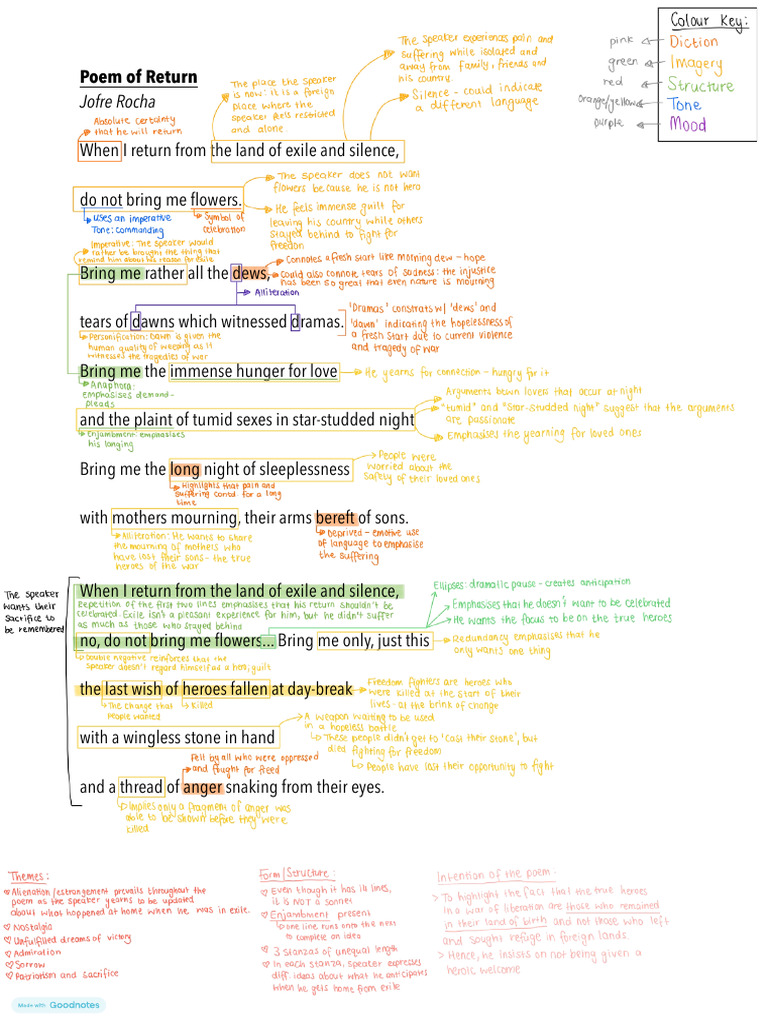 Colour Key:
pink
Diction
green
Imagery
red
Structure
orange/yellow
Tone
purple
Mood
Poem of Return
Jofre Rocha
The place the speaker
is now: it is a foreign
place where the
speaker feels restricted
and alone
The speaker experiences pain and
suffering while isolated and
away from family, friends and
his country.
Silence - could indicate
a different language
Absolute certainty
that he will return
When I return from the land of exile and silence,
do not bring me flowers.
The speaker does not want
flowers because he is not hero
He feels immense guilt for
leaving his country while others
stayed behind to fight for
freedom
Uses an imperative
Tone: commanding
Symbol of
celebration
Imperative: The speaker would
rather be brought the thing that
remind him about his reason for exile
Bring me rather all the dews,
Connotes a fresh start like morning dew - hope
Could also connote tears of sadness: the injustice
has been so great that even nature is mourning
Alliteration
tears of dawns which witnessed dramas.
'Dramas' constrats w/ 'dews' and
'dawn' indicating the hopelessness of
a fresh start due to current violence
and tragedy of war
Personification: Dawn is given the
human quality of weeping as it
witnesses the tragedies of war
Bring me the immense hunger for love
He yearns for connection - hungry for it
Anaphora:
emphasises demand -
pleads
and the plaint of tumid sexes in star-studded night
Arguments bewn lovers that occur at night
"tumid" and "star-studded night" suggest that the arguments
are passionate
Emphasises the yearning for loved ones
Enjambment: emphasises
his longing
Bring me the long night of sleeplessness
People were
worried about the
safety of their loved ones
Highlights that pain and
suffering contd. for a long
time
with mothers mourning, their arms bereft of sons.
Alliteration: He wants to share
the mourning of mothers who
have lost their sons - the true
heroes of the war
Deprived - emotive use
of language to emphasise
the suffering
The speaker
wants their
sacrifice to
be remembered
When I return from the land of exile and silence,
Repetition of the first two lines emphasises that his return shouldn't be
celebrated. Exile isn't a pleasant experience for him, but he didn't suffer
as much as those who stayed behind
Ellipses: dramatic pause - creates anticipation
Emphasises that he doesn't want to be celebrated
He wants the focus to be on the true heroes
no, do not bring me flowers... Bring me only, just this
Redundancy emphasises that he
only wants one thing
Double negative reinforces that the
speaker doesn't regard himself as a hero; guilt
the last wish of heroes fallen at day-break
Freedom fighters are heroes who
were killed at the start of their
lives - at the brink of change
The change that
people wanted
Killed
with a wingless stone in hand
A weapon waiting to be used
in a hopeless battle
These people didn't get to 'cast their stone', but
died fighting for freedom
People have lost their opportunity to fight
Fell by all who were oppressed
and fought for freed
and a thread of anger snaking from their eyes.
Implies only a fragment of anger was
able to be shown before they were
killed
Themes:
Alienation/estrangement prevails throughout the
poem as the speaker yearns to be updated
about what happened at home when he was in exile.
Nostalgia
Unfulfilled dreams of victory
Admiration
Sorrow
Patriotism and sacrifice
Form/Structure:
Even though it has 14 lines,
it is NOT a sonnet
Enjambment present
one line runs onto the next
to complete an idea
3 Stanzas of unequal length
In each stanza, speaker expresses
diff. ideas about what he anticipates
when he gets home from exile
Intention of the poem:
> To highlight the fact that the true heroes
in a war of literation are those who remained
in their land of birth and not those who left
and sought refuge in foreign lands.
> Hence, he insists on not being given a
heroic welcome
Made with Goodnotes